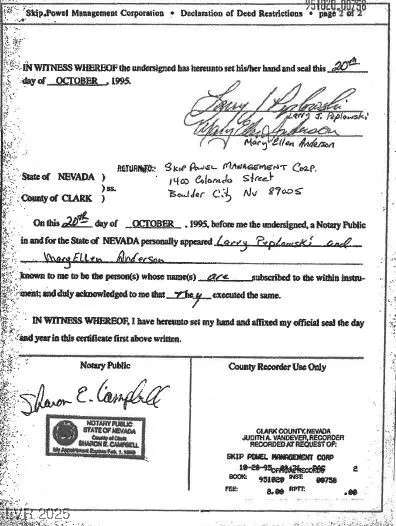 951020.00756
Skip Powel Management Corporation • Declaration of Deed Restrictions • page 2 of 2
IN WITNESS WHEREOF the undersigned has hereunto set his/her hand and seal this 20th
day of OCTOBER, 1995.
Larry J. Peplowski
Larry J. Peplowski
Mary Ellen Anderson
Mary Ellen Anderson
RETURN TO: SKIP POWEL MANAGEMENT CORP.
State of NEVADA ) 1400 Colorado Street
) ss. Boulder City NV 89005
County of CLARK )
On this 20th day of OCTOBER, 1995, before me the undersigned, a Notary Public
in and for the State of NEVADA personally appeared Larry Peplowski and
Mary Ellen Anderson
known to me to be the person(s) whose name(s) are subscribed to the within instru-
ment; and duly acknowledged to me that They executed the same.
IN WITNESS WHEREOF, I have hereunto set my hand and affixed my official seal the day
and year in this certificate first above written.
Notary Public
Sharon E. Campbell
NOTARY PUBLIC
STATE OF NEVADA
County of Clark
SHARON E. CAMPBELL
My Appointment Expires Feb. 1,
County Recorder Use Only
CLARK COUNTY, NEVADA
JUDITH A. VANDEVER, RECORDER
RECORDED AT REQUEST OF:
SKIP POWEL MANAGEMENT CORP
10-20-95 2
OFFICIAL RECORDS
BOOK: 951020 INST: 00756
FEE: 8.00 RPTT: .00
LVR 2025